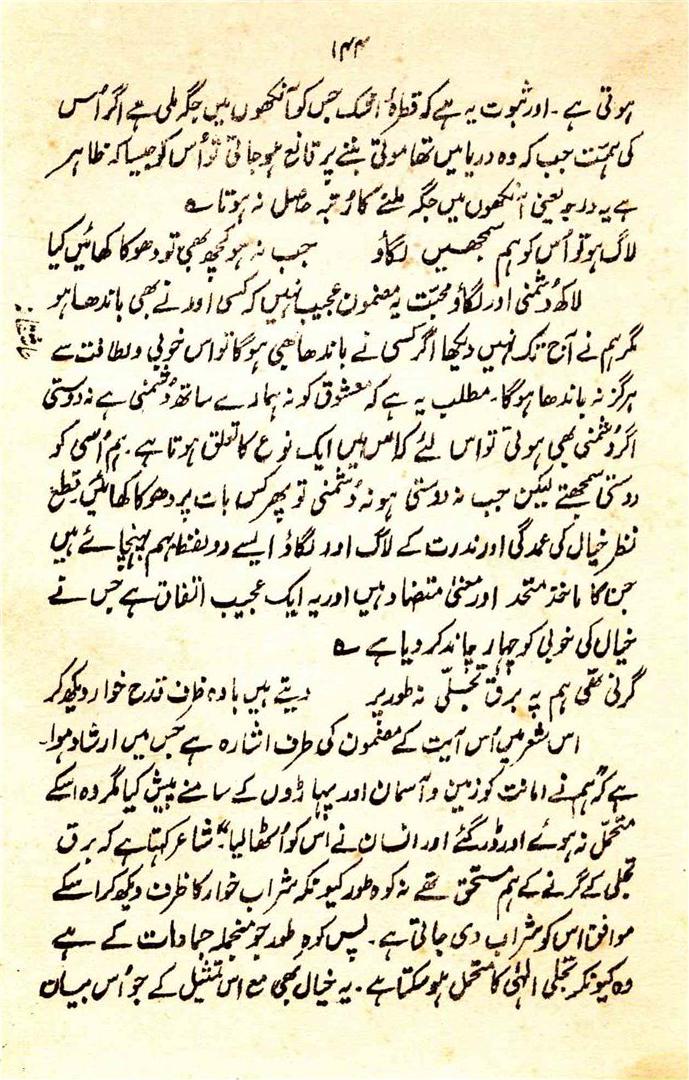 ۱۴۴
ہوتی ہے۔ اور ثبوت یہ ہے کہ قطرۂ اشک جس کو آنکھوں میں جگہ ملی ہے اگر اُس
کی ہمت جب کہ وہ دریا میں تھا موتی بننے پر قانع ہو جاتی تو اُس کو جیسا کہ ظاہر
ہے یہ درجہ یعنی آنکھوں میں جگہ ملنے کا رُتبہ حاصل نہ ہوتا ؎
لاگ ہو تو اُس کو ہم سمجھیں لگاؤ جب نہ ہو کچھ بھی تو دھوکا کھائیں کیا
لاگ دُشمنی اور لگاؤ محبّت یہ مضمون عجیب نہیں کہ کسی اور نے بھی باندھا ہو
مگر ہم نے آج تک نہیں دیکھا اگر کسی نے باندھا بھی ہوگا تو اس خوبی و لطافت سے
ہرگز نہ باندھا ہوگا۔ مطلب یہ ہے کہ معشوق کو نہ ہمارے ساتھ دُشمنی ہے نہ دوستی
اگر دُشمنی بھی ہوتی تو اس لئے کہ اس میں ایک نوع کا تعلق ہوتا ہے۔ ہم اُسی کو
دوستی سمجھتے لیکن جب نہ دوستی ہو نہ دُشمنی تو پھر کس بات پر دھوکا کھائیں قطع
نظر خیال کی عمدگی اور ندرت کے لاگ اور لگاؤ ایسے دو لفظ بہم پہنچائے ہیں
جن کا ماخذ متحد اور معنی متضاد ہیں اور یہ ایک عجیب اتفاق ہے جس نے
خیال کی خوبی کو چہار چاند کر دیا ہے ؎
گرنی تھی ہم پہ برق تجلّی نہ طور پر دیتے ہیں بادہ ظرف قدح خوار دیکھ کر
اس شعر میں اُس آیت کے مضمون کی طرف اشارہ ہے جس میں ارشاد ہوا۔
ہے کہ "ہم نے امانت کو زمین و آسمان اور پہاڑوں کے سامنے پیش کیا مگر وہ اسکے
متحمل نہ ہوئے اور ڈر گئے اور انسان نے اُس کو اُٹھا لیا"۔ شاعر کہتا ہے کہ برق
تجلی کے گرنے کے ہم مستحق تھے نہ کوہ طور کیونکہ شراب خوار کا ظرف دیکھ کر اسکے
موافق اس کو شراب دی جاتی ہے۔ پس کوہِ طور جو منجملہ جمادات کے ہے
وہ کیونکر تجلی الٰہی کا متحمل ہو سکتا ہے۔ یہ خیال بھی مع اس تمثیل کے جو اُس بیان